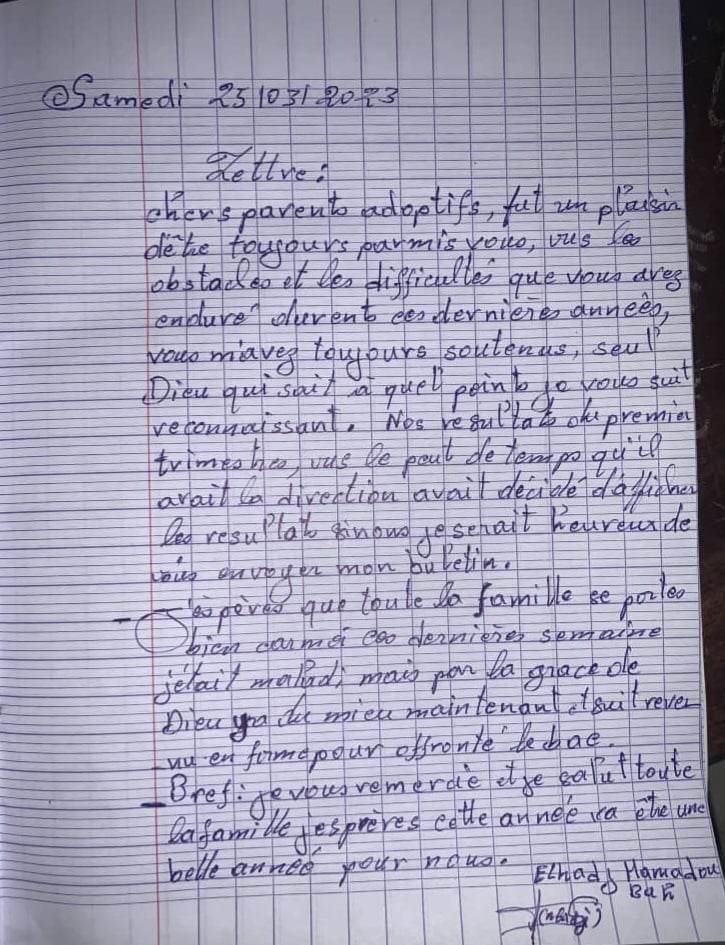 @Samedi 25/03/2023
Lettre:
chers parents adoptifs, fut un plaisir
dêtre toujours parmis vous, vus les
obstacles et les difficultés que vous avez
enduré durent ces dernières années,
vous m'avez toujours soutenus, seul
Dieu qui sait à quel point je vous suit
reconnaissant. Nos resultats du premier
trimestres, vus le peut de temps qu'il
avait la direction avait décidé d'afficher
les resultats sinous je serait heureux de
vous envoyer mon buletin.
- J'espères que toute la famille se portes
bien car moi ces dernières semaine
j'étais maladi mais par la grace de
Dieu ya du mieu maintenant et suit rever
nu en forme pour affronté le bac.
- Bref: je vous remercie et je salut toute
la famille j'esprères cette année va être une
belle année pour nous.
Elhadj Mamadou
Bah